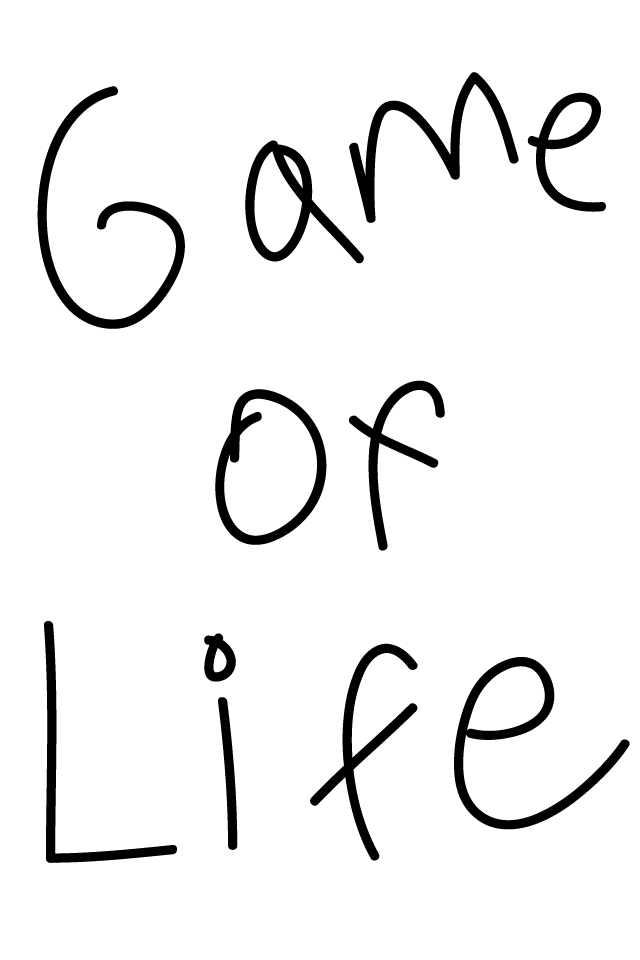 Game
Of
Life